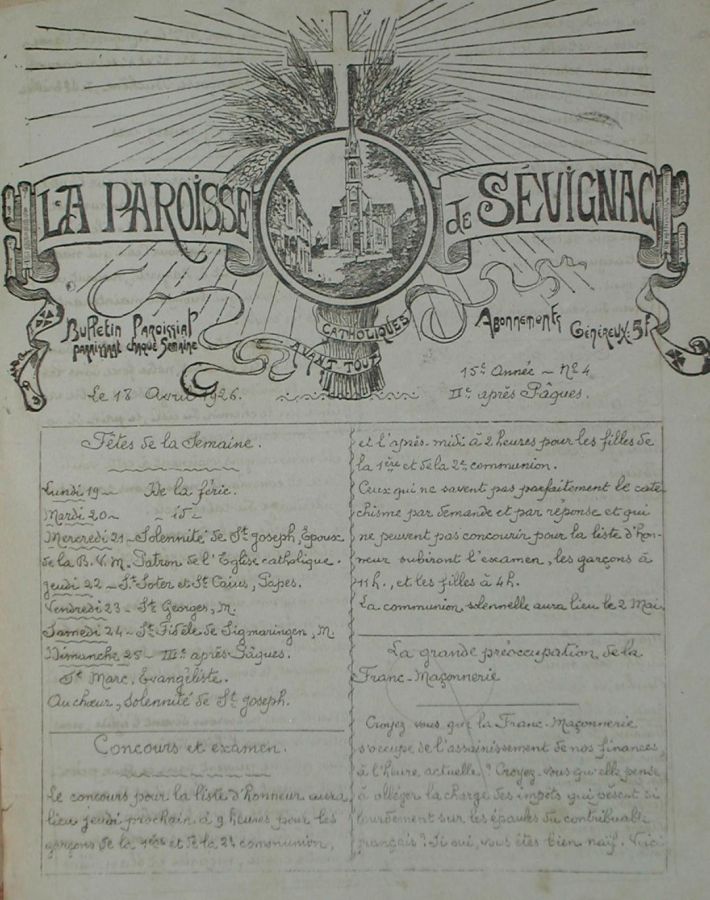 LA PAROISSE de SÉVIGNAC
Bulletin Paroissial
paraissant chaque Semaine
CATHOLIQUES
AVANT TOUT
Abonnements
Généreux: 5f
Le 18 Avril 1926.
15e Année - No 4
IIe après Pâques.
Fêtes de la Semaine.
Lundi 19 - De la férie.
Mardi 20 - - id -
Mercredi 21 - Solennité de St Joseph, Epoux
de la B.V.M. Patron de l'Eglise catholique.
Jeudi 22 - Sts Soter et St Caius, Papes.
Vendredi 23 - St Georges, M.
Samedi 24 - St Fidèle de Sigmaringen, M.
Dimanche 25 - IIIe après Pâques.
St Marc, Evangéliste.
Au chœur, Solennité de St Joseph.
Concours et examen.
Le concours pour la liste d'honneur aura
lieu jeudi prochain à 9 heures pour les
garçons de la 1ère et de la 2e communion,
et l'après-midi à 2 heures pour les filles de
la 1ère et de la 2e communion.
Ceux qui ne savent pas parfaitement le caté-
chisme par demande et par réponse et qui
ne peuvent pas concourir pour la liste d'hon-
neur subiront l'examen, les garçons à
11h., et les filles à 4h.
La communion solennelle aura lieu le 2 Mai.
La grande préoccupation de la
Franc-Maçonnerie
Croyez vous que la Franc-Maçonnerie
s'occupe de l'assainissement de nos finances,
à l'heure actuelle? Croyez-vous qu'elle pense
à alléger la charge des impôts qui pèsent si
lourdement sur les épaules du contribuable
français? Si oui, vous êtes bien naïf. Voici